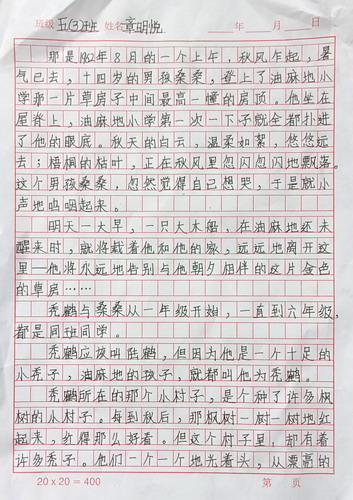 班级 五(3)班 姓名 章明悦 年 月 日
那是1962年8月的一个上午，秋风乍起，暑
气已去，十四岁的男孩桑桑，登上了油麻地小
学那一片草房子中间最高一幢的房顶。他坐在
屋脊上，油麻地小学第一次一下子就全都扑进
了他的眼底。秋天的白云，温柔如絮，悠悠远
去；梧桐的枯叶，正在秋风里忽闪忽闪地飘落。
这个男孩桑桑，忽然觉得自己想哭，于是就小
声地呜咽起来。
明天一大早，一只大木船，在油麻地还未
醒来时，就将载着他和他的家，远远地离开这
里—他将永远地告别与他朝夕相伴的这片金色
的草房……
秃鹤与桑桑从一年级开始，一直到六年级，
都是同班同学。
秃鹤应该叫陆鹤，但因为他是一个十足的
小秃子，油麻地的孩子，就都叫他为秃鹤。
秃鹤所在的那个小村子，是个种了许多枫
树的小村子。每到秋后，那枫树一树一树地红
起来，红得那么好看。但这个村子里，却有着
许多秃子。他们一个一个地光着头，从票亮的
20×20=400 第 页